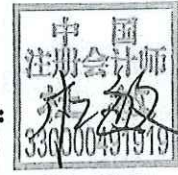 :
中国
注册会计师
330000491919